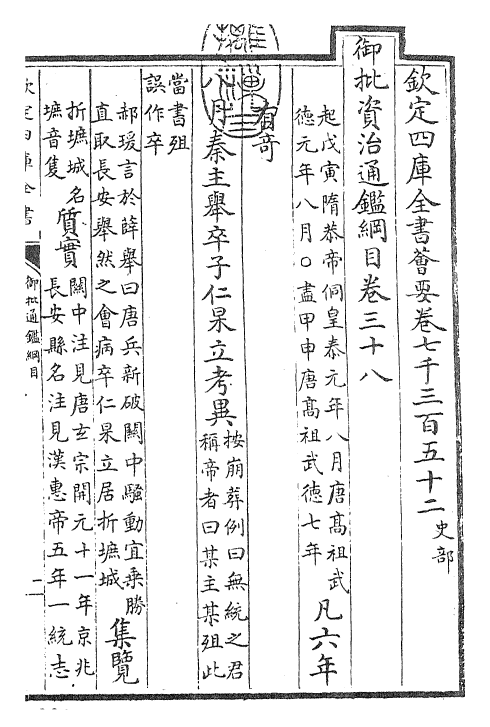 欽定四庫全書薈要卷七千三百五十二史部
御批資治通鑑綱目卷三十八
起戊寅隋恭帝侗皇泰元年八月唐髙祖武
德元年八月○盡甲申唐髙祖武德七年
凡六年
八月秦主舉卒子仁杲立考異
按崩葬例曰無統之君
稱帝者曰某主某殂此
當書殂
誤作卒
郝瑗言於薛舉曰唐兵新破闗中騷動宜乗勝
直取長安舉然之會病卒仁杲立居折墌城
集覽
折墌城名
墌音隻
質實
闗中注見唐玄宗開元十一年京兆
長安縣名注見漢惠帝五年一統志
欽定四庫全書
御批通鑑綱目